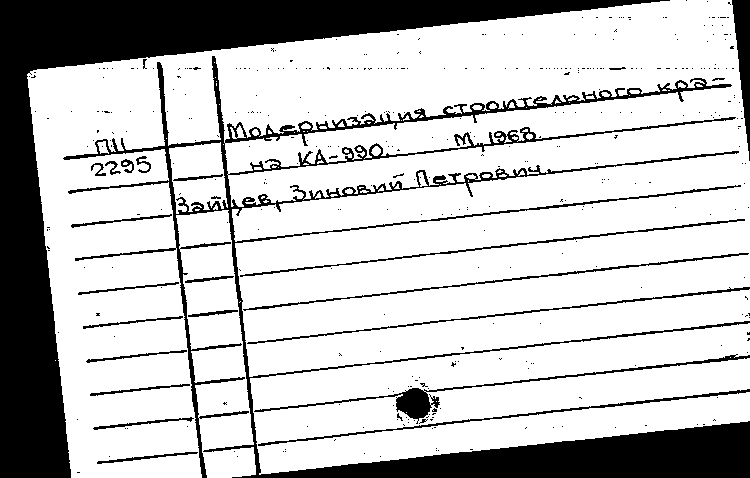 ПШ Модернизация строительного кра-
2295 на КА-990. М., 1968
Зайцев, Зиновий Петрович.